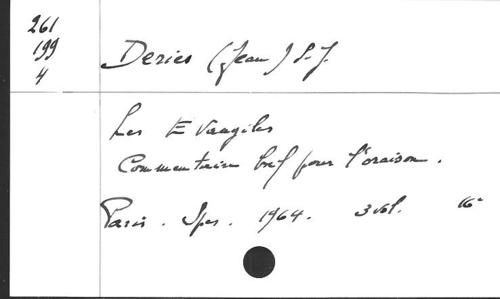 261
199
4
Deries (Jean) S.J.
Les Evangiles
Commentaire bref pour l'oraison.
Paris. Spes. 1964. 3 vol. 16°